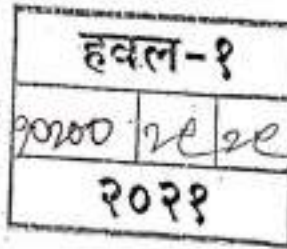 हवल-१
१०२०० २९ २९
२०२१